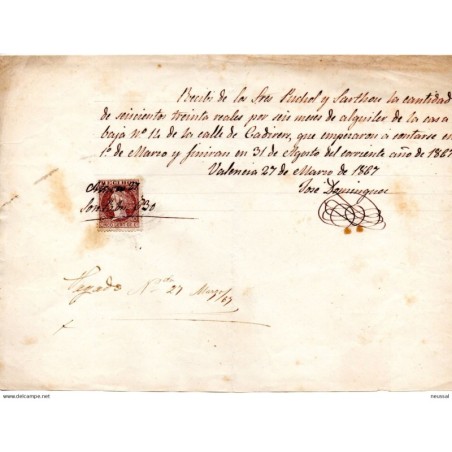 Recibí de los Sres Puchol y Sarthou la cantidad
de seiscientos treinta reales por seis meses de alquiler de la casa
baja Nº 14 de la calle de Cadirers, que empezaron á contarse en
1º de Marzo y finiran en 31 de Agosto del corriente año de 1867
Valencia 27 de Marzo de 1867
José Dominguez
Son
630
Pagado
27 Marzo/67
www.delcampe.net
neusisal